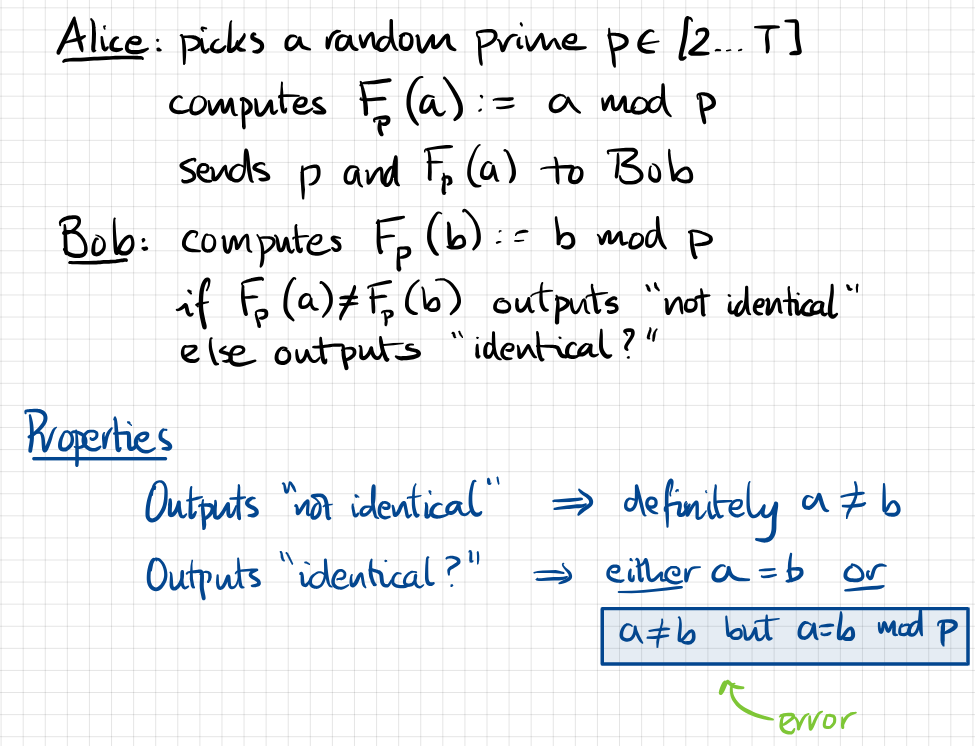 Alice: picks a random prime p ∈ [2... T]
computes Fₚ(a) := a mod p
sends p and Fₚ(a) to Bob
Bob: computes Fₚ(b) := b mod p
if Fₚ(a) ≠ Fₚ(b) outputs "not identical"
else outputs "identical?"
Properties
Outputs "not identical" ⇒ definitely a ≠ b
Outputs "identical?" ⇒ either a = b or
a ≠ b but a = b mod p
error